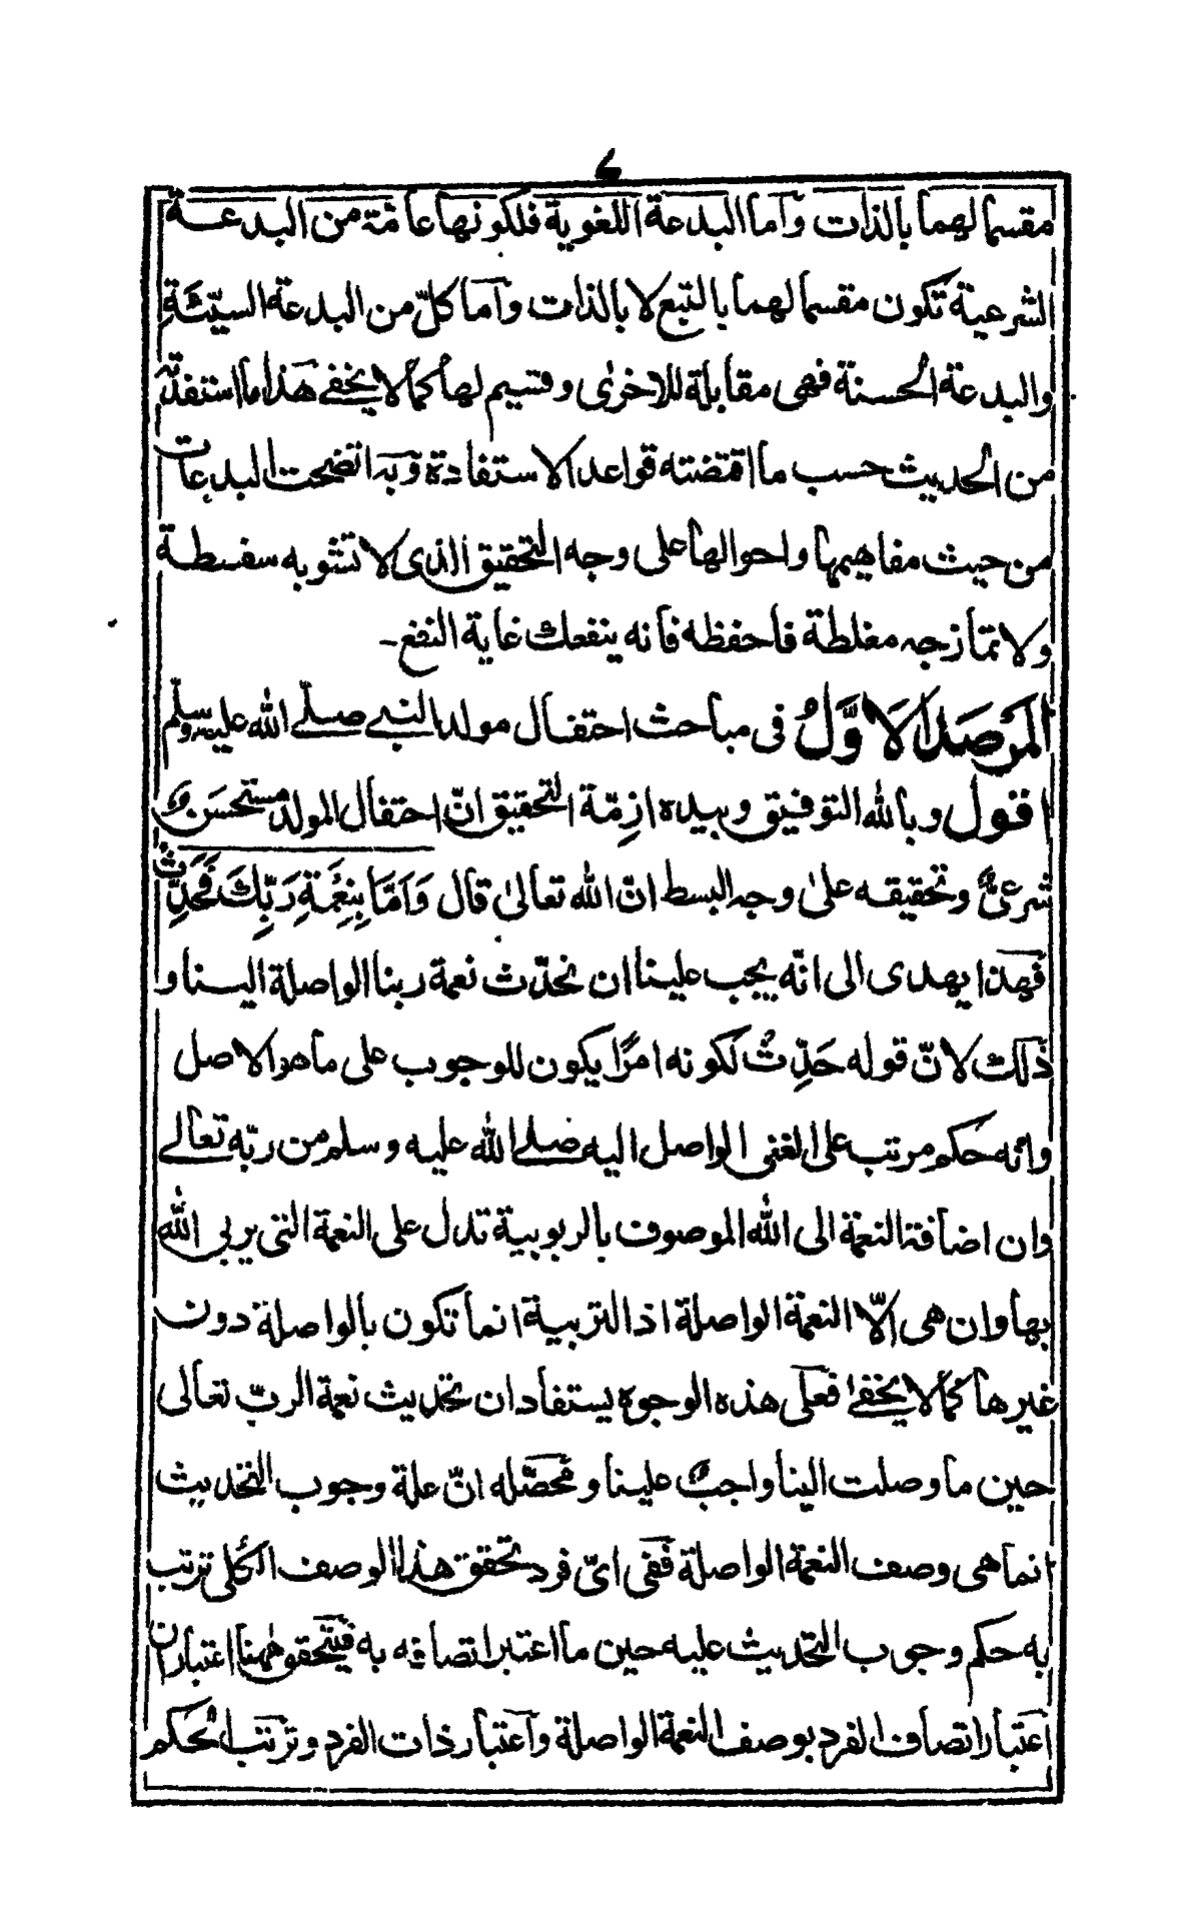 ٧
مقسما لهما بالذات وآما البدعة اللغوية فلكونها عامّة من البدعة
الشرعية تكون مقسما لهما بالتبع لا بالذات وآما كلّ من البدعة السيّئة
والبدعة الحسنة فهى مقابلة للاخرٰى وقسيم لها كما لا يخفے هذا ما استفدتّه
من الحديث حسب ما اقتضته قواعد الاستفادة وبه اتضحت البدعات
من حيث مفاهيمها واحوالها على وجه التحقيق الذى لا تشوبه سفسطة
ولا تمازجه مغلطة فاحفظه فانه ينفعك غاية النفع ـ
المَرْصَدُ الاَوَّلُ فى مباحث احتفال مولد النبے صلّے الله عليه وسلّم
اقول وبالله التوفيق وبيده ازِمّة التحقيق انّ احتفال المولد مستحسَنٌ
شرعىٌّ وتحقيقه علىٰ وجه البسط انّ الله تعالىٰ قال وَاَمَّا بِنِعْمَةِ رَبِّكَ فَحَدِّثْ
فهٰذا يهدى الى انّه يجب علينا ان نحدّث نعمة ربنا الواصلة الينا و
ذٰلك لانّ قوله حَدِّثْ لكونه امرًا يكون للوجوب على ما هو الاصل
وانه حكم مرتب على الغنى الواصل اليه صلے الله عليه وسلم من ربّه تعالے
وان اضافة النعمة الى الله الموصوف بالربوبية تدل على النعمة التى يربى الله
بها وان هى الّا النعمة الواصلة اذ التربية انما تكون بالواصلة دون
غيرها كما لا يخفےٰ فعلى هذه الوجوه يستفاد ان تحديث نعمة الربّ تعالى
حين ما وصلت الينا واجبٌ علينا ومحصّله انّ علة وجوب التحديث
انما هى وصف النعمة الواصلة ففى اىّ فرد تحقق هذا الوصف الكلى ترتب
به حكم وجوب التحديث عليه حين ما اعتبر اتصافه به فيتحقق ههنا اعتباران
اعتبار اتصاف الفرد بوصف النعمة الواصلة وآعتبار ذات الفرد وترتب الحكم